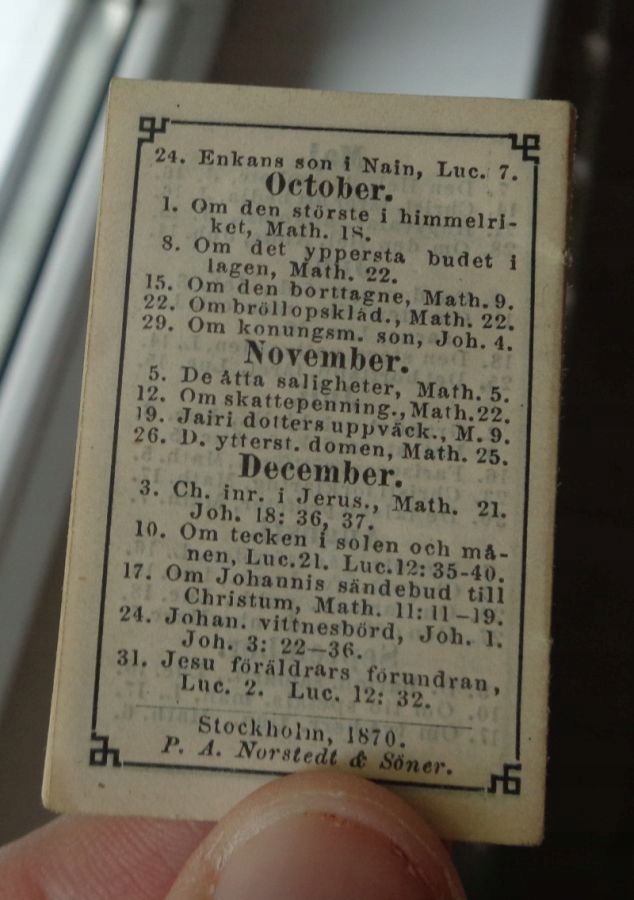 24. Enkans son i Nain, Luc. 7.
October.
1. Om den störste i himmelri-
ket, Math. 18.
8. Om det yppersta budet i
lagen, Math. 22.
15. Om den borttagne, Math. 9.
22. Om bröllopskläd., Math. 22.
29. Om konungsm. son, Joh. 4.
November.
5. De åtta saligheter, Math. 5.
12. Om skattepenning., Math. 22.
19. Jairi dotters uppväck., M. 9.
26. D. ytterst. domen, Math. 25.
December.
3. Ch. inr. i Jerus., Math. 21.
Joh. 18: 36, 37.
10. Om tecken i solen och må-
nen, Luc. 21. Luc. 12: 35-40.
17. Om Johannis sändebud till
Christum, Math. 11: 11—19.
24. Johan. vittnesbörd, Joh. 1.
Joh. 3: 22—36.
31. Jesu föräldrars förundran,
Luc. 2. Luc. 12: 32.
Stockholm, 1870.
P. A. Norstedt & Söner.